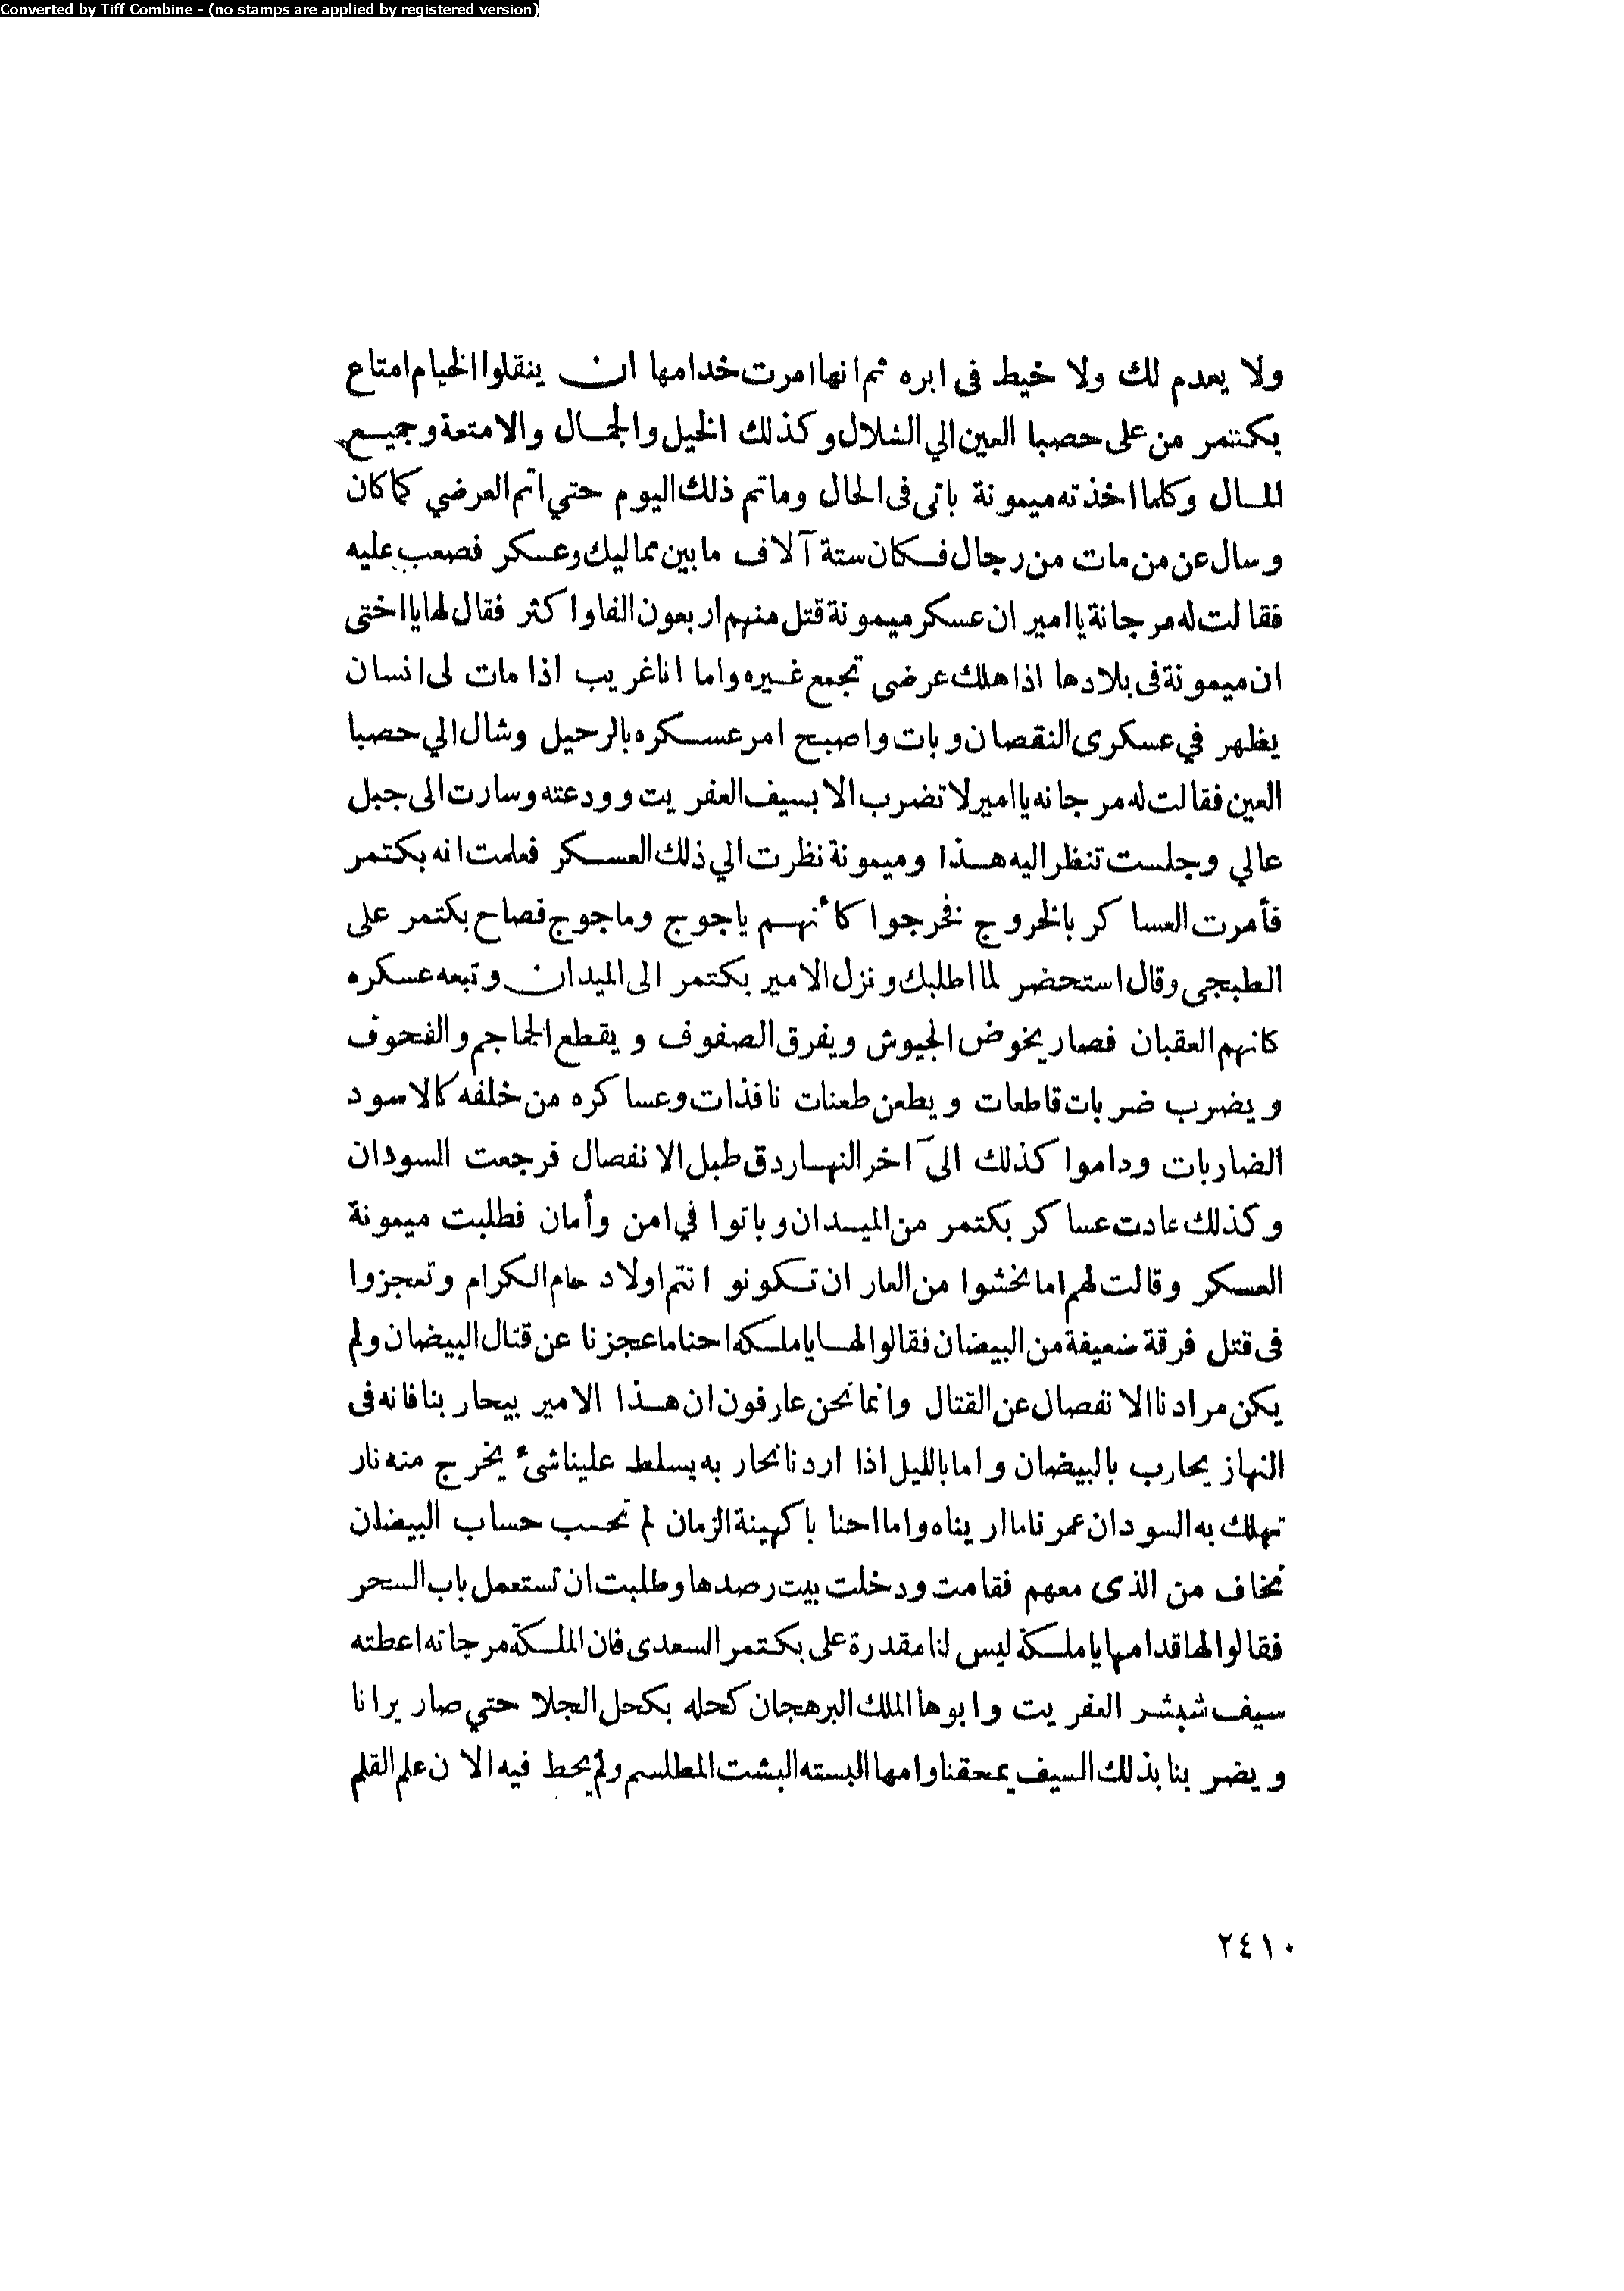 Converted by Tiff Combine - (no stamps are applied by registered version)
ولا يعدم لك ولا خيط فى ابره ثم انها امرت خدامها ان ينقلوا الخيام امتاع
بكتمر من على حصبا العين الي الشلال وكذلك الخيل والجمال والامتعة وجميع
المال وكلما اخذته ميمونة باتى فى الحال وماتم ذلك اليوم حتي اتم العرضي كما كان
وسال عن من مات من رجال فكان ستة آلاف ما بين مماليك وعسكر فصعب عليه
فقالت له مرجانة يا امير ان عسكر ميمونة قتل منهم اربعون الفا واكثر فقال لها يا اختى
ان ميمونة فى بلادها اذا هلك عرضى تجمع غيره واما انا غريب اذا مات لى انسان
يظهر في عسكرى النقصان وبات واصبح امر عسكره بالرحيل وشال الي حصبا
العين فقالت له مرجانه يا امير لا تضرب الا بسيف العفريت وودعته وسارت الى جبل
عالي وجلست تنظر اليه هذا وميمونة نظرت الي ذلك العسكر فعلمت انه بكتمر
فأمرت العساكر بالخروج فخرجوا كأنهم ياجوج وماجوج فصاح بكتمر على
الطبجى وقال استحضر لما اطلبك ونزل الامير بكتمر الى الميدان وتبعه عسكره
كانهم العقبان فصار يخوض الجيوش ويفرق الصفوف ويقطع الجماجم والفحوف
ويضرب ضربات قاطعات ويطعن طعنات نافذات وعساكره من خلفه كالاسود
الضاربات وداموا كذلك الى آخر النهار دق طبل الانفصال فرجعت السودان
وكذلك عادت عساكر بكتمر من الميدان وباتوا في امن وأمان فطلبت ميمونة
العسكر وقالت لهم اما تخشوا من العار ان تكونو انتم اولاد حام الكرام وتعجزوا
فى قتل فرقة ضعيفة من البيضان فقالوا لها يا ملكه احنا ما عجزنا عن قتال البيضان ولم
يكن مرادنا الانفصال عن القتال وانما نحن عارفون ان هذا الامير بيحاربنا فانه فى
النهاز يحارب بالبيضان واما بالليل اذا اردنا نحاربه يسلط علينا شىء يخرج منه نار
تهلك به السودان عمرنا ما اريناه واما احنا يا كهينة الزمان لم نحسب حساب البيضان
نخاف من الذى معهم فقامت ودخلت بيت رصدها وطلبت ان تستعمل باب السحر
فقالوا لها قدامها يا ملكة ليس لنا مقدرة على بكتمر السعدى فان الملكة مرجانه اعطته
سيف شبشر العفريت وابوها الملك البرهجان كحله بكحل الجلا حتي صار يرانا
ويضربنا بذلك السيف يمحقنا وامها البسته البشت المطلسم ولم يحط فيه الان علم القلم
٢٤١٠